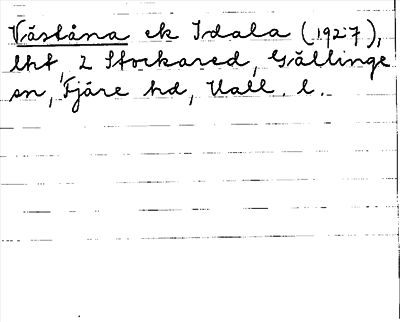 Väståna ek Idala (1927),
lht, 2 Stockared, Gällinge
sn, Fjäre hd, Hall. l.